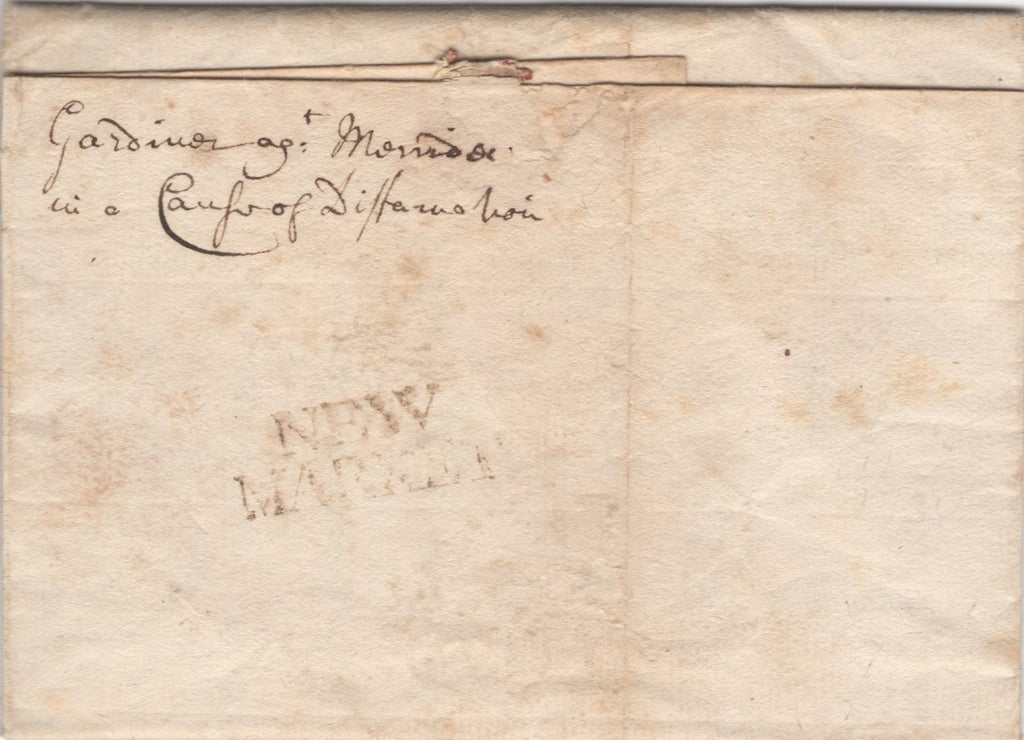 Gardiner agt: Merrider
in a Cause of Diffamation
NEW
MARKET